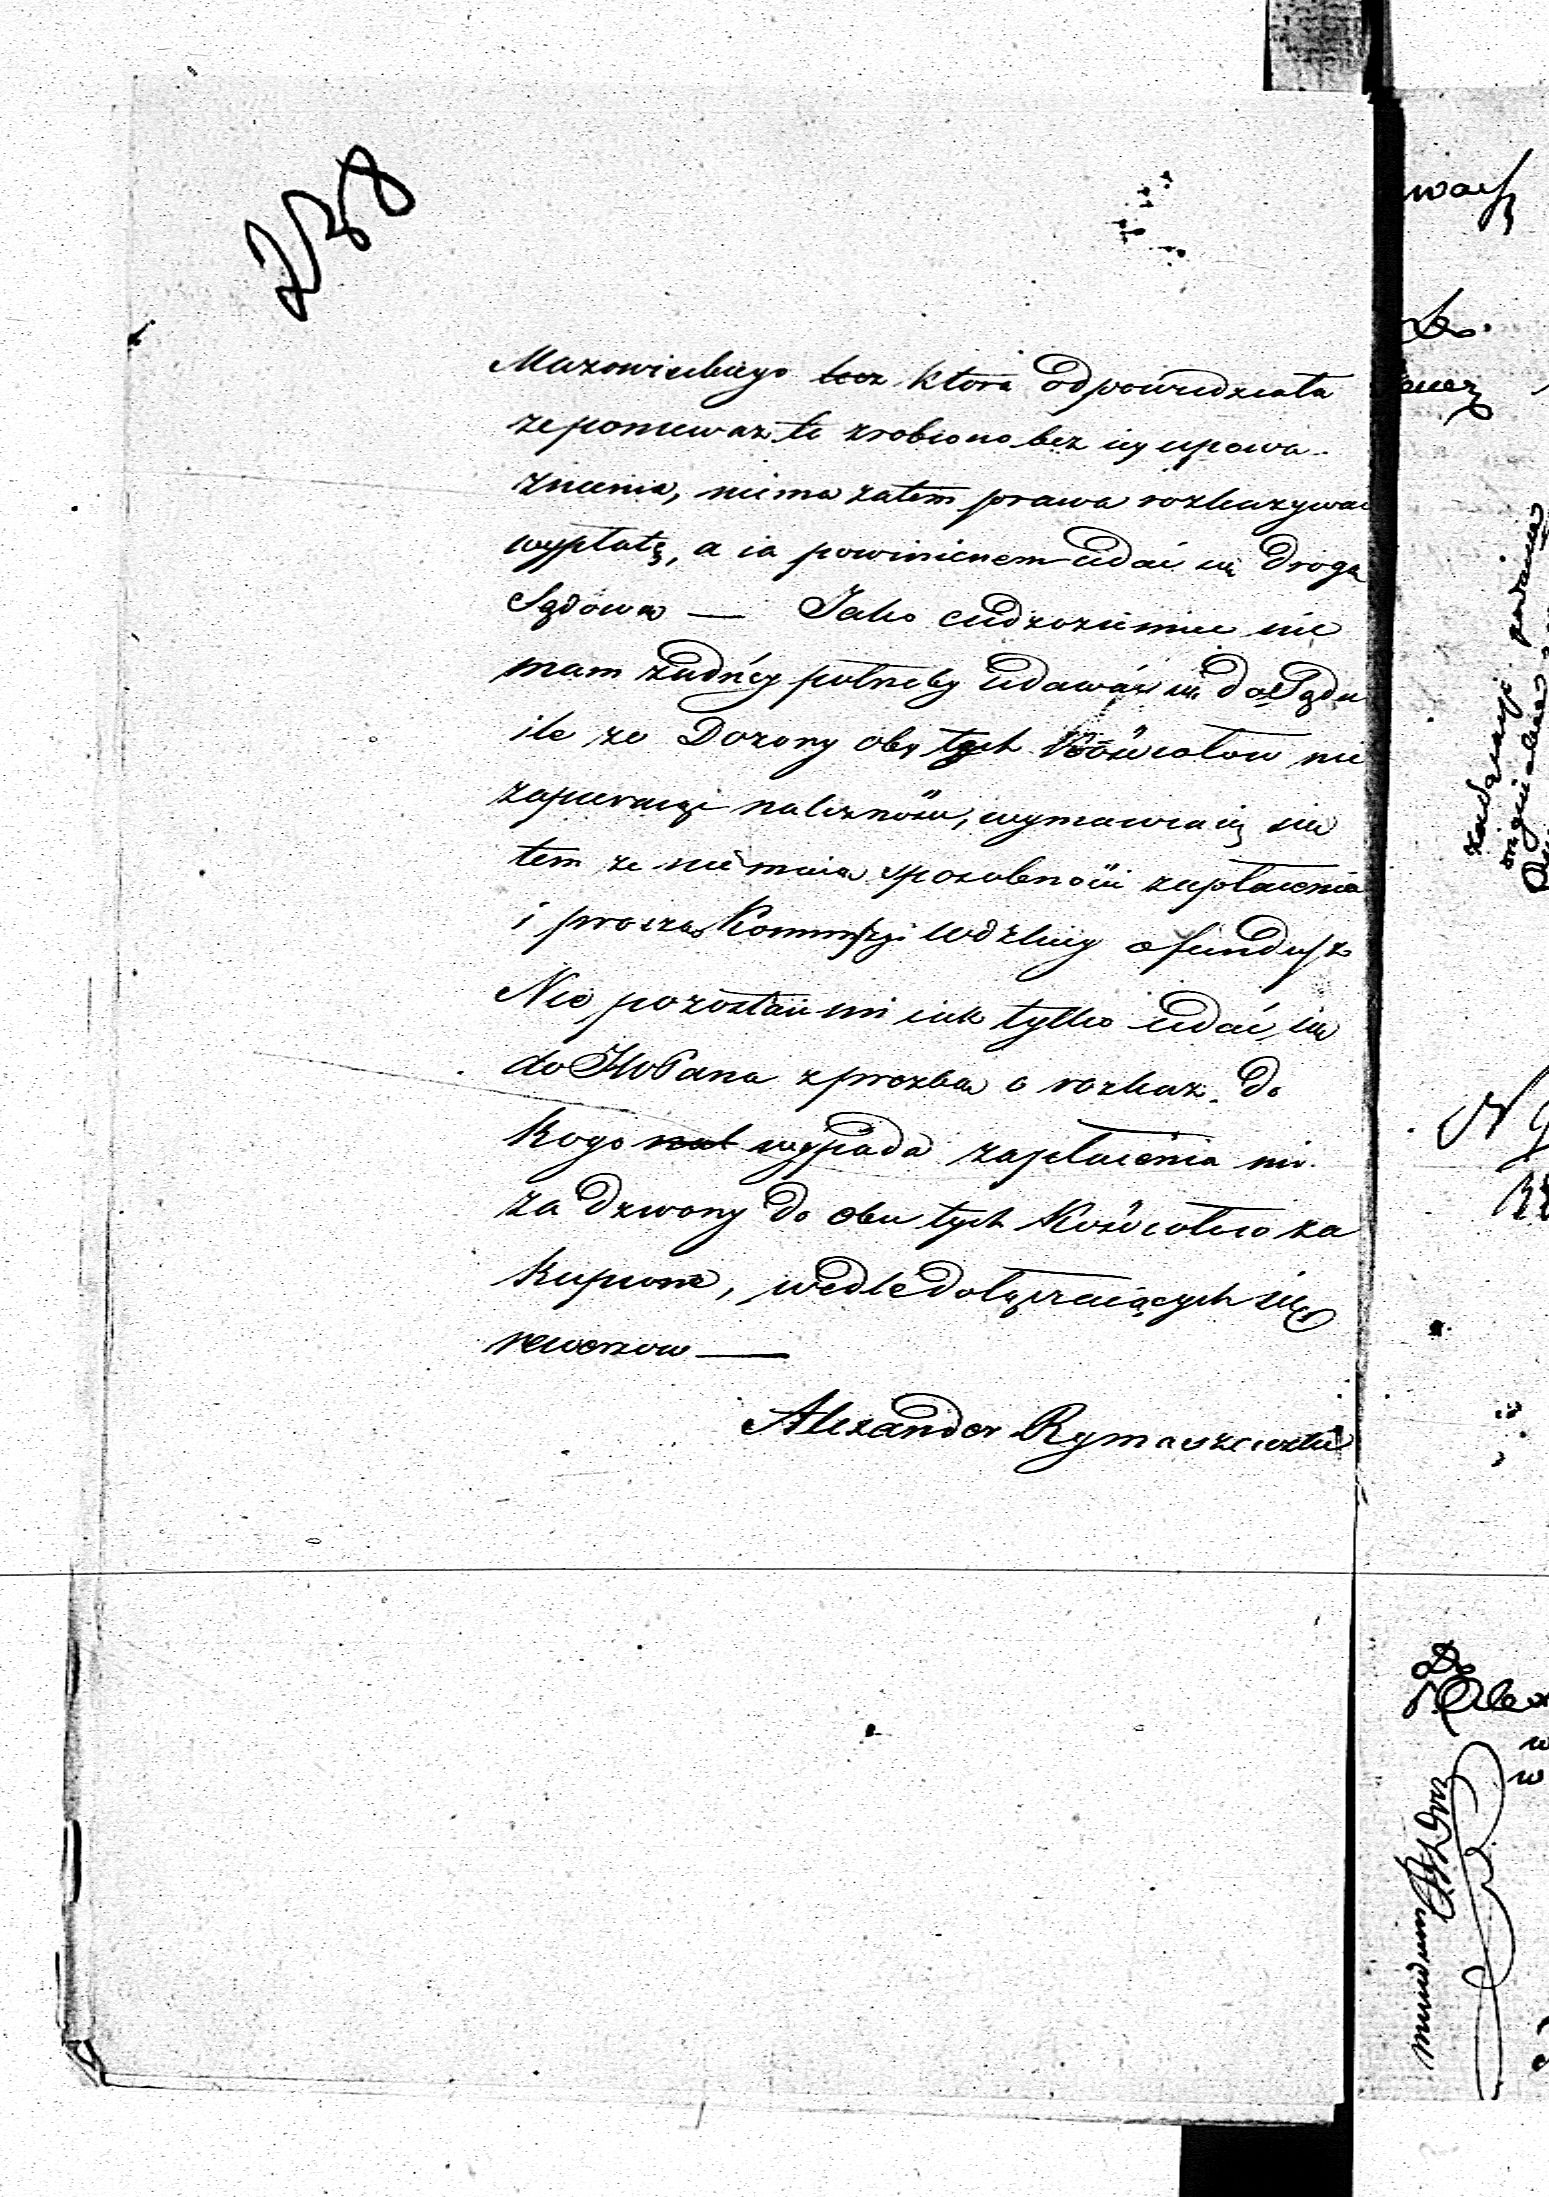 238
Mazowieckiego lecz ktora odpowiedziała
ze poniewaz to zrobiono bez iey upowa-
znienia, niema zatem prawa rozkazywać
wypłatę, a ia powinienem udać się drogą
Sądową — Jako cudzoziemiec nie
mam żadnéy potrzeby udawać się do Sądu
ile ze Dozory obu tych Kościołow nie
zapieraią nalezności, wymawiaią się
tem ze niemaią sposobności zapłacenia
i proszą Kommissyi Wdzkiey o fundusz
Nie pozostaie mi iak tylko udać się
do JWPana z prozbą o rozkaz. do
kogo wypada zapłacenia mi
za dzwony do obu tych Kościołow za
kupione, wedle dołączaiących się
rewersow —
Alexander Rymaszewski